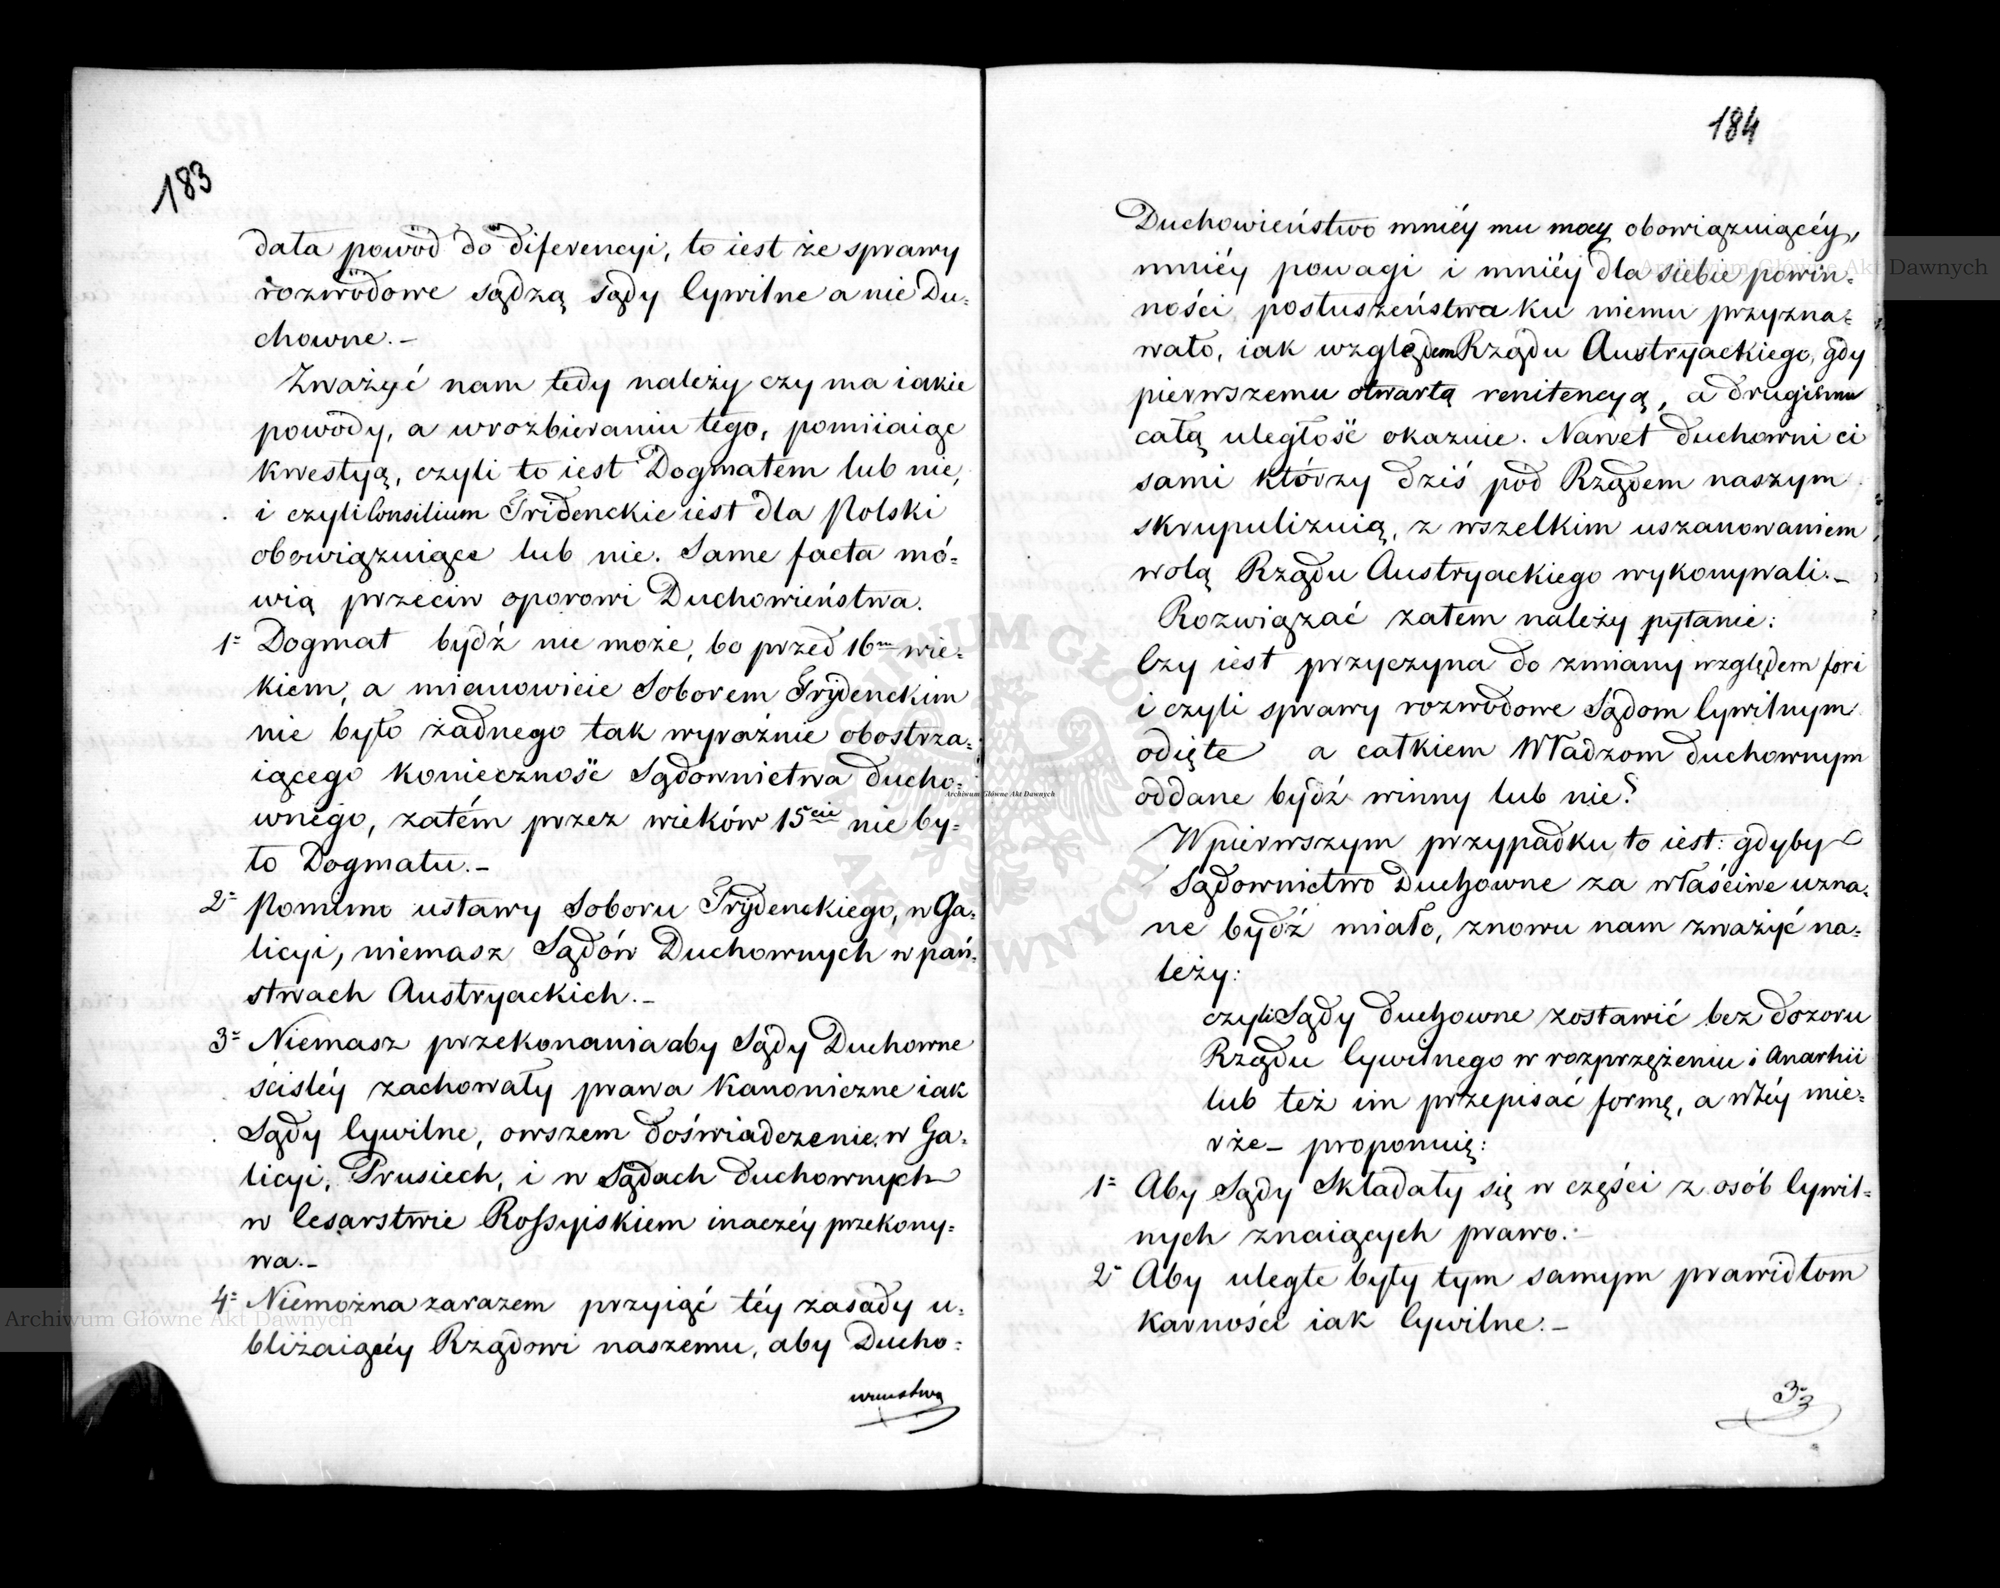 183
dała powód do diferencyi, to iest że sprawy
rozwodowe sądzą sądy Cywilne a nie Du=
chowne.—
Zważyć nam tedy należy czy ma iakie
powody, a w rozbieraniu tego, pomiiaiąc
kwestyą, czyli to iest Dogmatem lub nie,
i czyli Consilium Tridenckie iest dla Polski
obowiązuiące lub nie. Same facta mó=
wią przeciw oporowi Duchowieństwa.
1= Dogmat bydź nie może, bo przed 16m wie=
kiem, a mianowicie Soborem Trydenckim
nie było żadnego tak wyraźnie obostrza=
iącego konieczność Sądownictwa ducho=
wnego, zatém przez wieków 15cie nie by=
ło Dogmatu.—
2= Pomimo ustawy Soboru Trydenckiego, w Ga=
licyi, niemasz Sądów Duchownych w pań=
stwach Austryackich.—
3= Niemasz przekonania aby Sądy Duchowne
ściśléy zachowały prawa Kanoniczne iak
Sądy Cywilne, owszem doświadczenie w Ga=
licyi, Prusiech, i w Sądach duchownych
w Cesarstwie Rossyiskiem inaczéy przekony=
wa.—
4= Niemożna zarazem przyiąć téy zasady u=
bliżaiącéy Rządowi naszemu, aby Ducho=
wieństwo
184
Duchowieństwo mniéy mu mocy obowiązuiącéy,
mniéy powagi i mniéy dla siebie powin=
ności posłuszeństwa ku niemu przyzna=
wało, iak względem Rządu Austryackiego, gdy
pierwszemu otwartą renitencyą, a drugiemu
całą uległość okazuie. Nawet duchowni ci
sami którzy dziś pod Rządem naszym
skrupulizuią, z wszelkim uszanowaniem
wolą Rządu Austryackiego wykonywali.—
Rozwiązać zatem należy pytanie:
Czy iest przyczyna do zmiany względem fori
i czyli sprawy rozwodowe Sądom Cywilnym
odięte a całkiem Władzom duchownym
oddane bydź winny lub nie?
W pierwszym przypadku to iest: gdyby
Sądownictwo Duchowne za właściwe uzna=
ne bydź miało, znowu nam zważyć na=
leży:
czyli Sądy duchowne zostawić bez dozoru
Rządu Cywilnego w rozprzężeniu i Anarhii
lub też im przepisać formę, a w téy mie=
rze— proponuię:
1= Aby Sądy Składały się w części z osób Cywil=
nych znaiących prawo.—
2= Aby uległe były tym samym prawidłom
karności iak Cywilne.—
3=
Archiwum Główne Akt Dawnych
Archiwum Główne Akt Dawnych
Archiwum Główne Akt Dawnych
ARCHIWUM GŁÓWNE AKT DAWNYCH